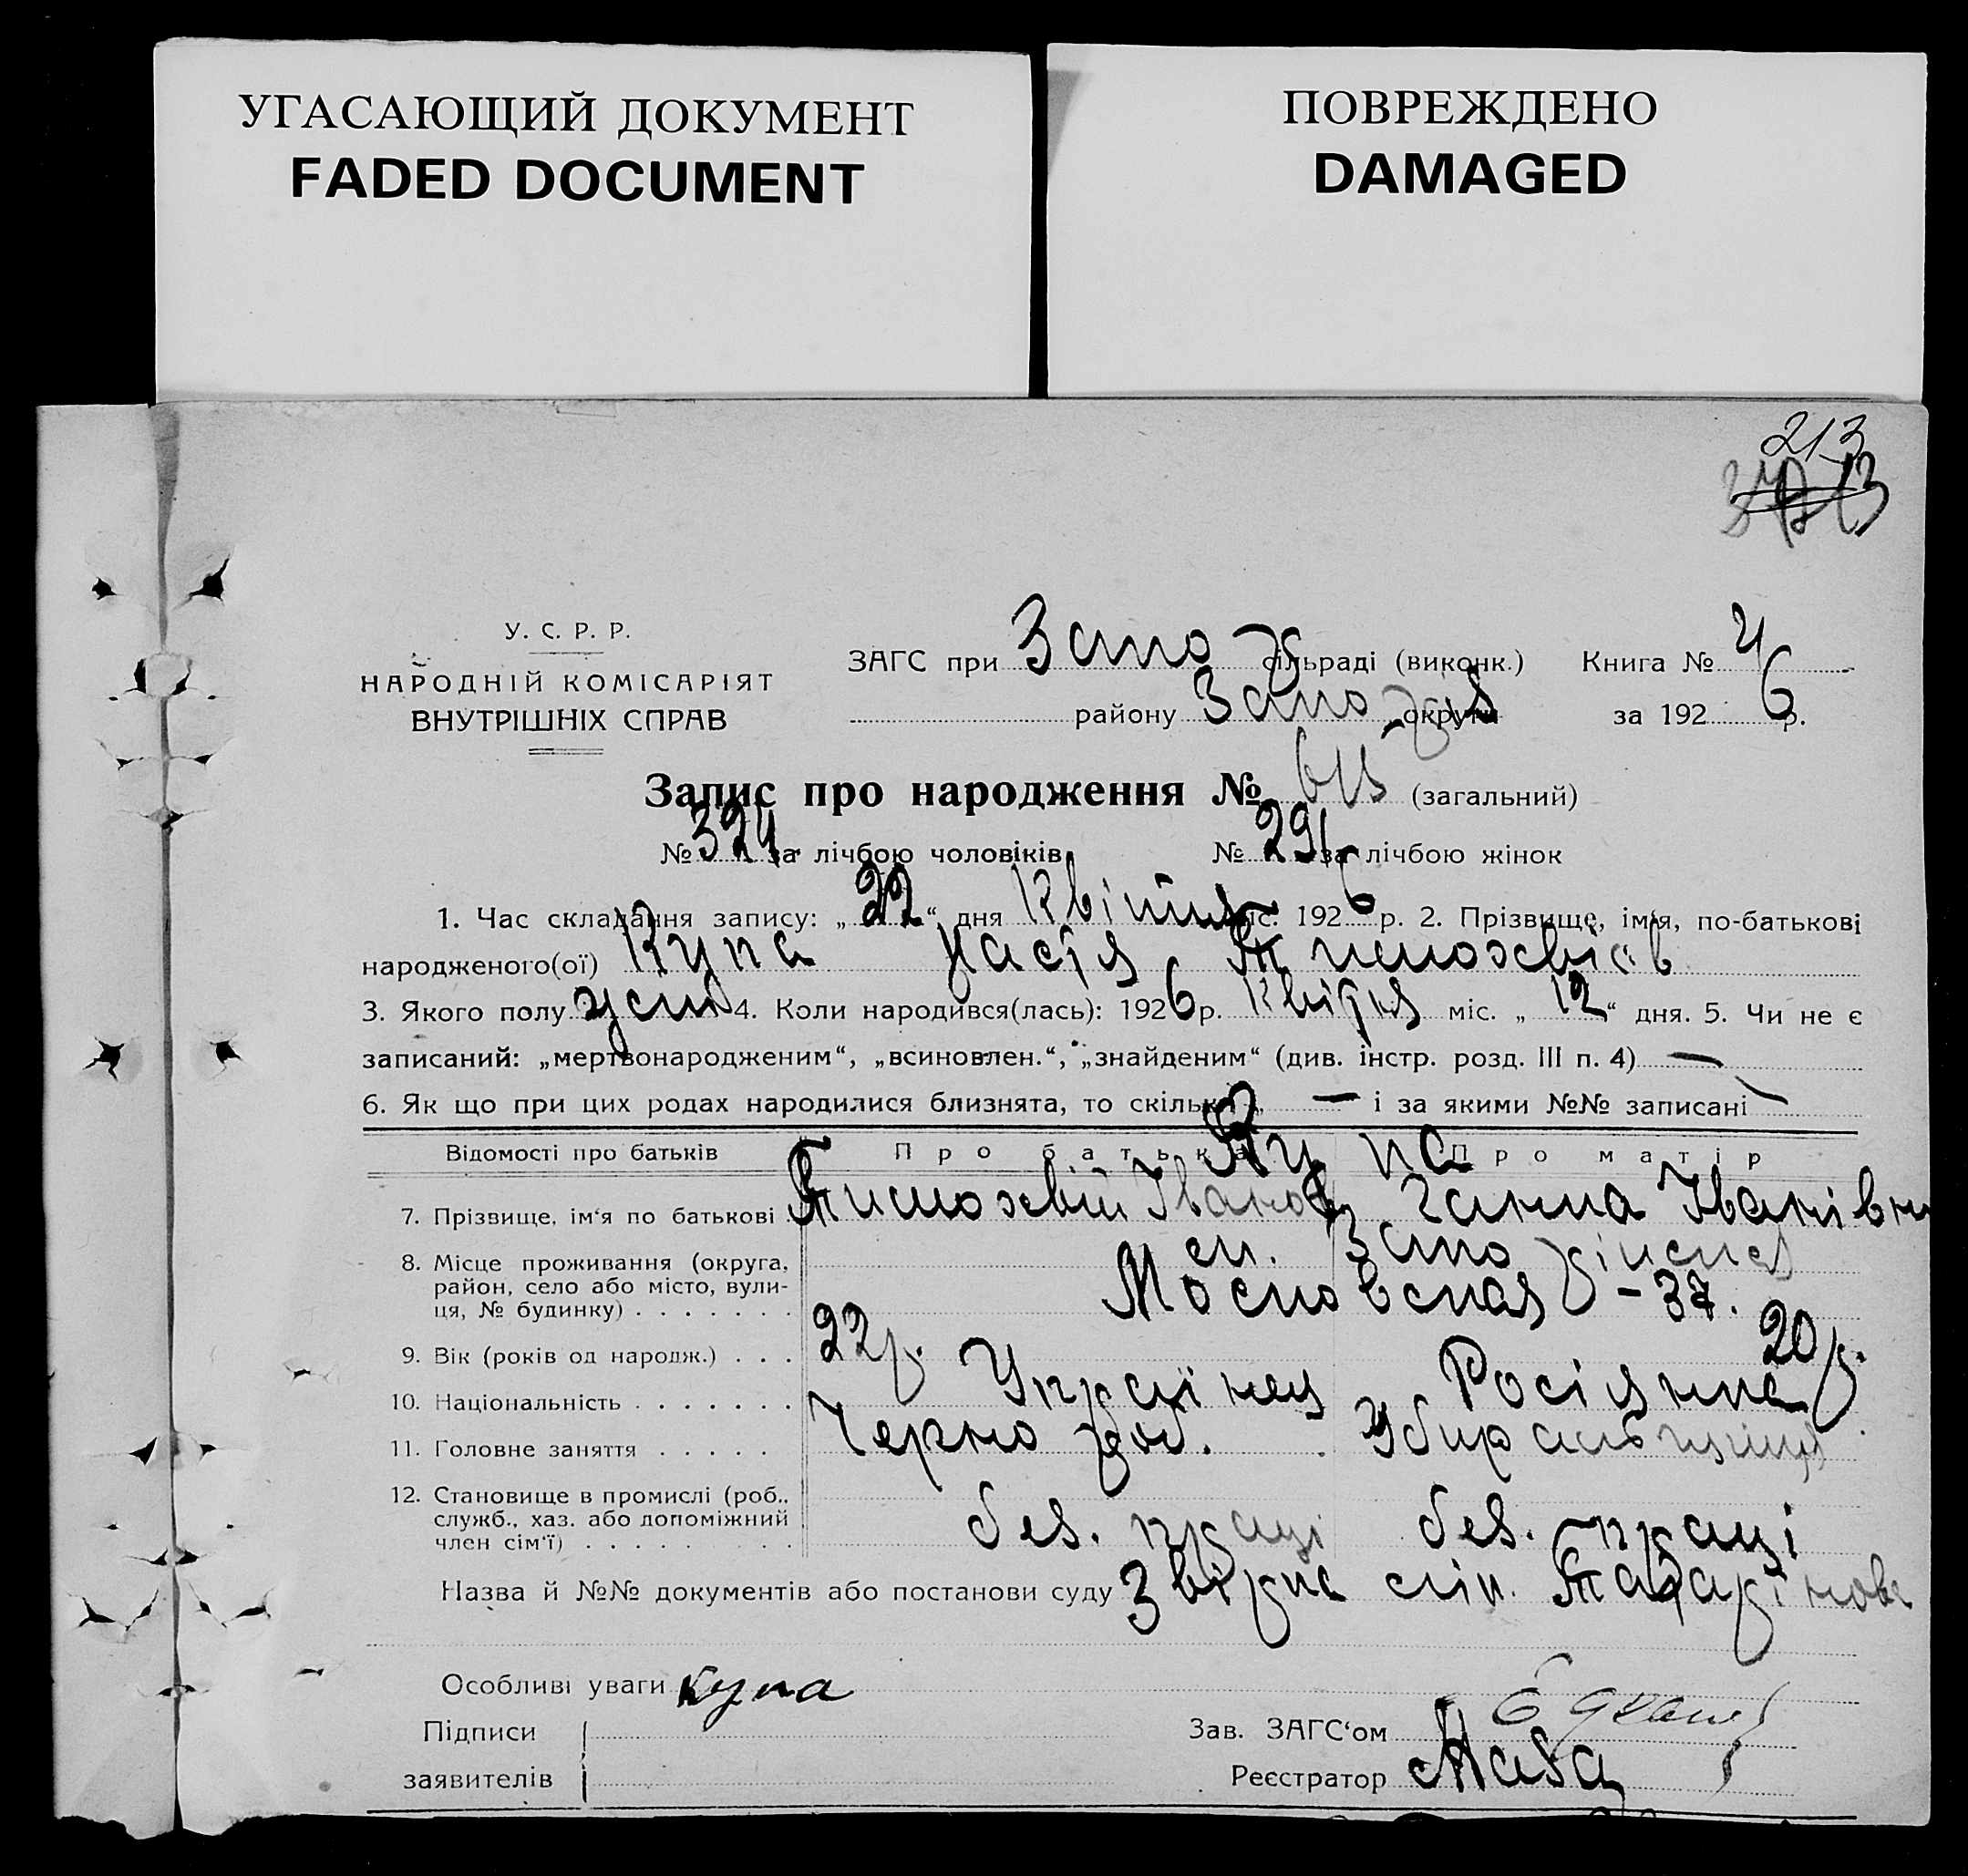 УГАСАЮЩИЙ ДОКУМЕНТ
FADED DOCUMENT
ПОВРЕЖДЕНО
DAMAGED
213
У. С. Р. Р.
НАРОДНІЙ КОМІСАРІЯТ
ВНУТРІШНІХ СПРАВ
ЗАГС при Запо сільраді (виконк.) Книга № 4
району Запо округи за 1926 р.
Запис про народження № 615 (загальний)
№ 324 за лічбою чоловіків № 291 за лічбою жінок
1. Час складання запису: „22“ дня Квітня міс. 1926 р. 2. Прізвище, ім'я, по-батькові
народженого(ої) Купа Настя
3. Якого полу 4. Коли народився(лась): 1926 р. Квітня міс. „12“ дня. 5. Чи не є
записаний: „мертвонародженим“, „всиновлен.“, „знайденим“ (див. інстр. розд. III п. 4) —
6. Як що при цих родах народилися близнята, то скільки „ — і за якими №№ записані —
Відомості про батьків Про батька Про матір
Купа
7. Прізвище, ім‘я по батькові Тимохвій Іванов Ганна Іванівна
8. Місце проживання (округа, район, село або місто, вулиця, № будинку) ст. Запо
Московская – 37.
9. Вік (років од народж.) 22 р. 20 р.
10. Національність Українец Росіянка
11. Головне заняття Чернороб. Убиральниця
12. Становище в промислі (роб., служб., хаз. або допоміжний член сім‘ї) без. праці без. праці
Назва й №№ документів або постанови суду Звірка
Особливі уваги Купа
Підписи
заявителів
Зав. ЗАГС‘ом
Реєстратор